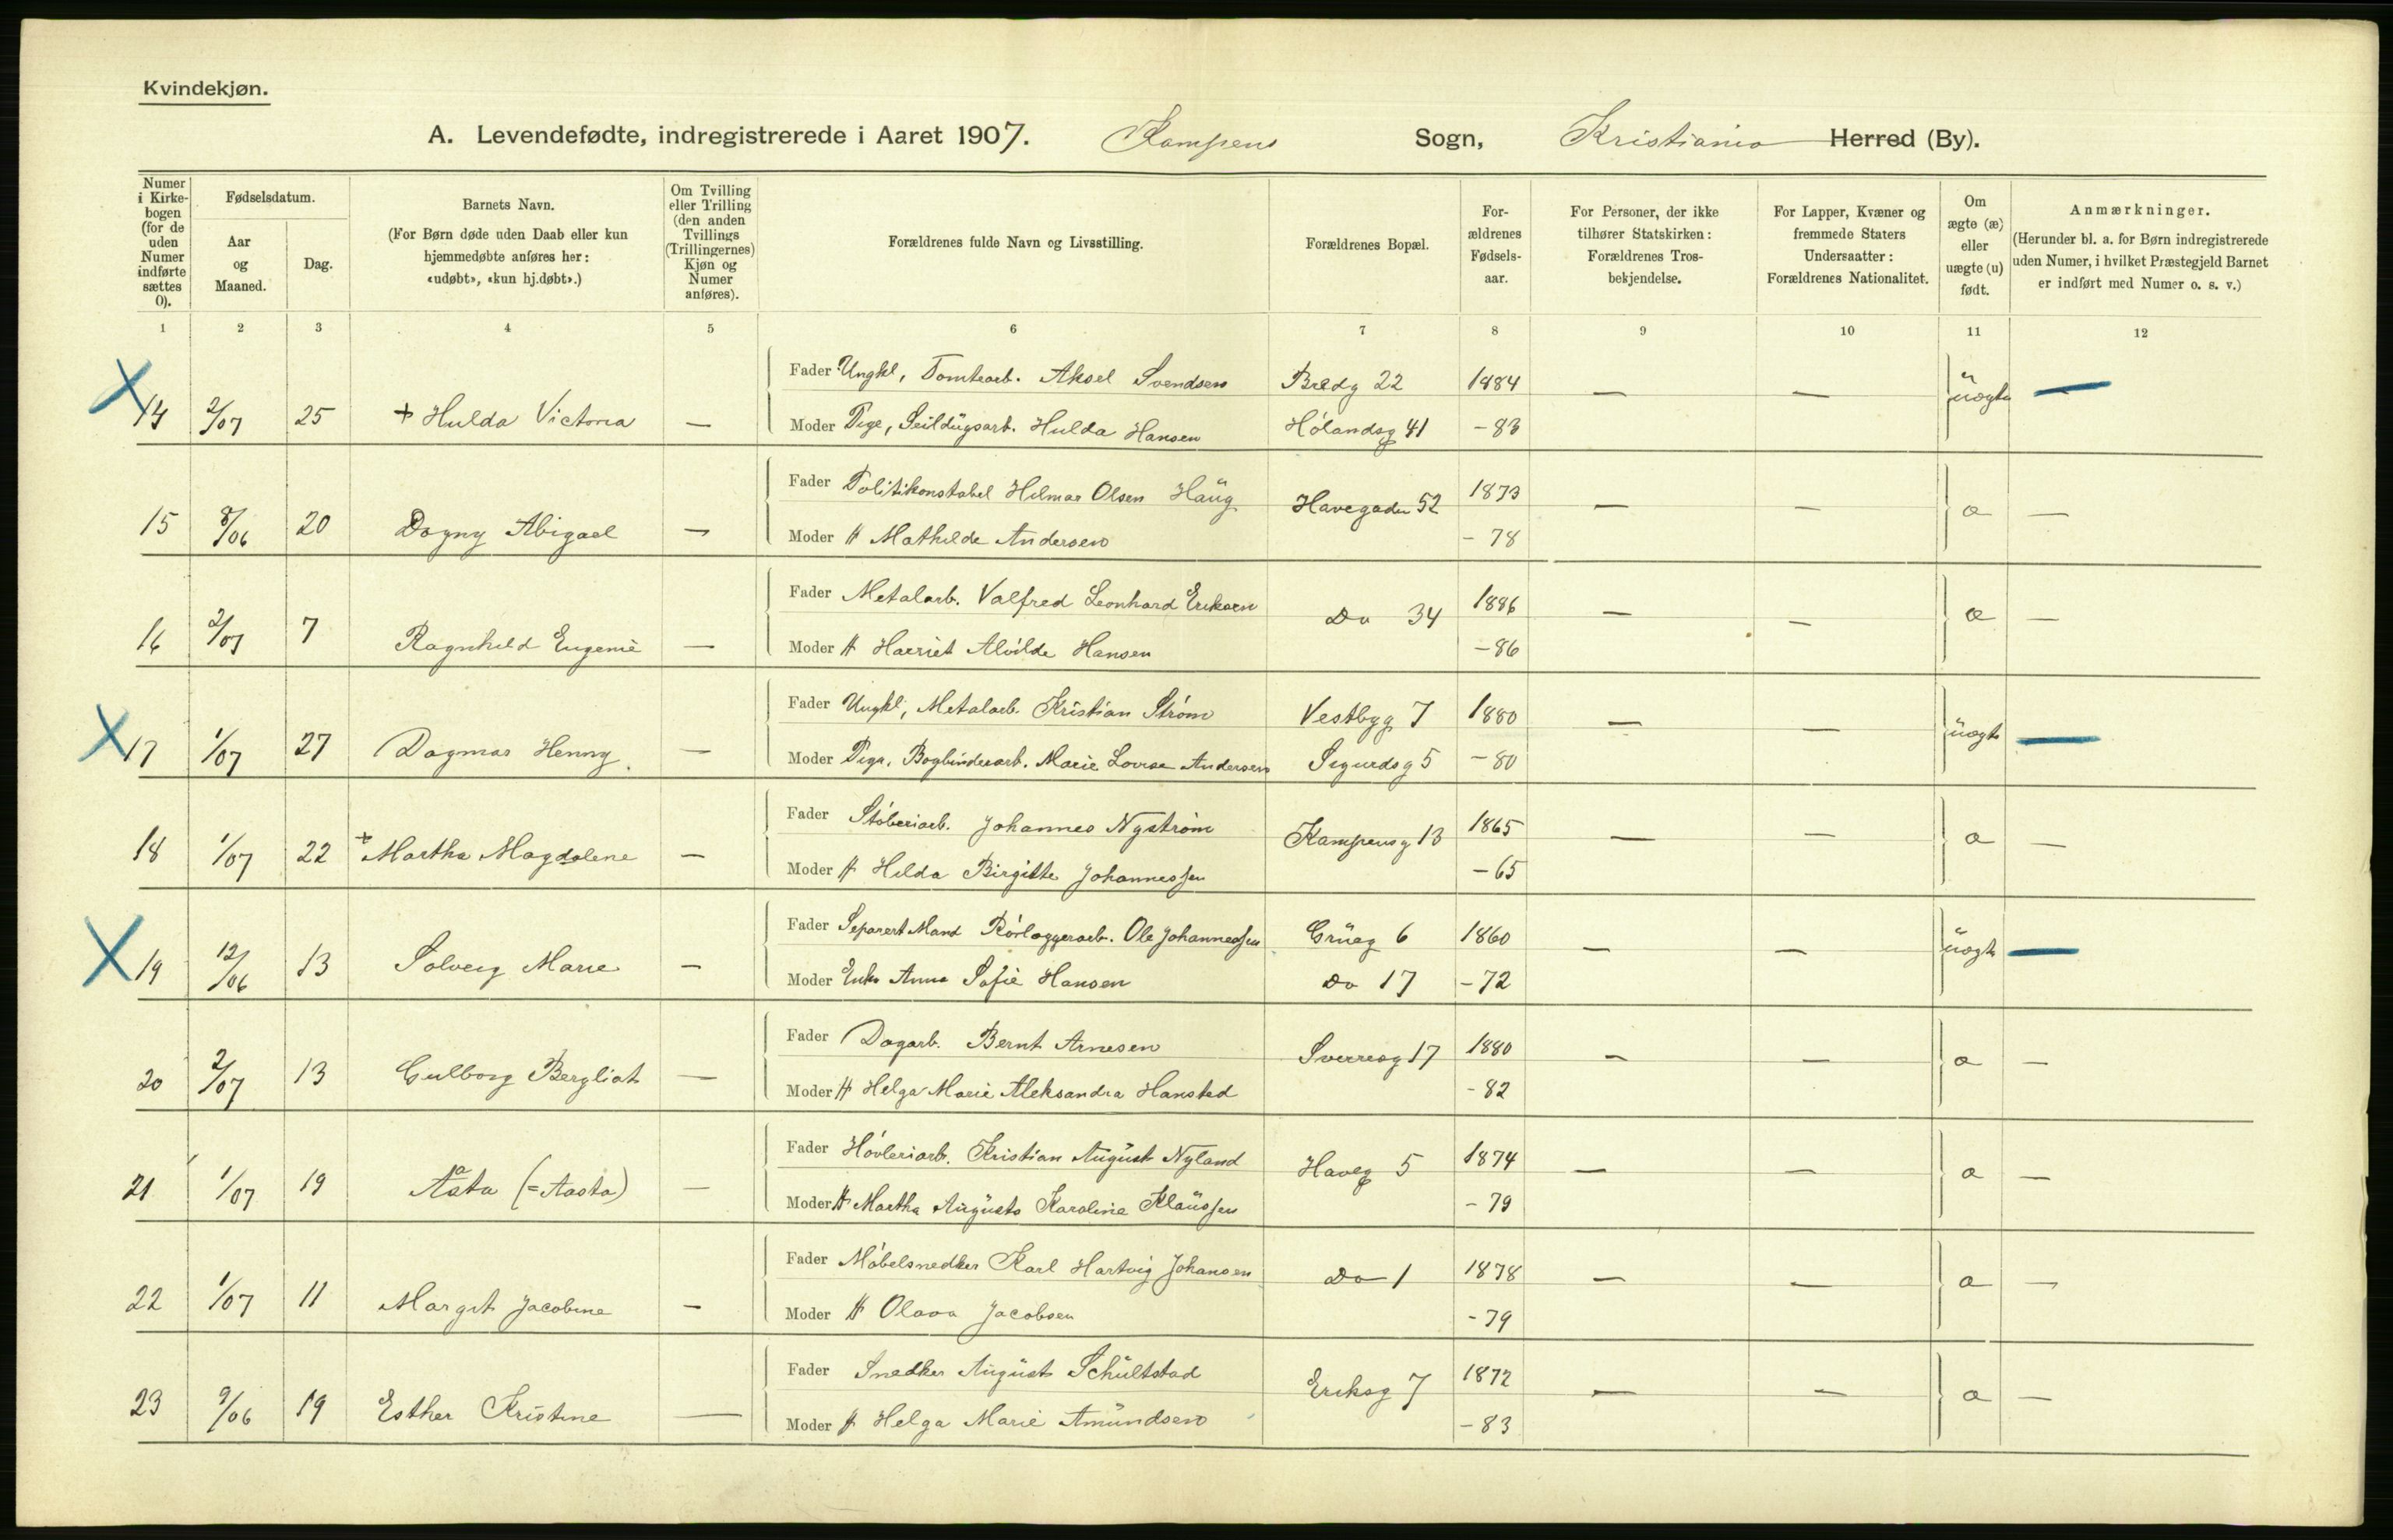 Kvindekjøn.
A. Levendefødte, indregistrerede i Aaret 1907. Kampens Sogn, Kristiania Herred (By).
Numer i Kirkebogen (for de uden Numer indførte sættes 0).
Fødselsdatum.
Aar og Maaned.
Dag.
Barnets Navn.
(For Børn døde uden Daab eller kun hjemmedøbte anføres her: «udøbt», «kun hj.døbt».)
Om Tvilling eller Trilling (den anden Tvillings (Trillingernes) Kjøn og Numer anføres).
Forældrenes fulde Navn og Livsstilling.
Forældrenes Bopæl.
Forældrenes Fødselsaar.
For Personer, der ikke tilhører Statskirken: Forældrenes Trosbekjendelse.
For Lapper, Kvæner og fremmede Staters Undersaatter: Forældrenes Nationalitet.
Om ægte (æ) eller uægte (u) født.
Anmærkninger.
(Herunder bl. a. for Børn indregistrerede uden Numer, i hvilket Præstegjeld Barnet er indført med Numer o. s. v.)
1 2 3 4 5 6 7 8 9 10 11 12
Fader Ungkl, Tomtearb. Aksel Svendsen Bredg 22 1884
14 2/07 25 + Hulda Victoria — — — uægte —
Moder Pige, Seildugsarb. Hulda Hansen Hølandsg 41 -83
Fader Politikonstabel Hilmar Olsen Haug Havegaden 52 1873
15 8/06 20 Dagny Abigael — — — æ —
Moder H Mathilde Andersen - 78
Fader Metalarb. Valfred Leonhard Eriksen Do 34 1886
16 2/07 7 Ragnhild Eugenie — — — æ —
Moder H Harriet Alvilde Hansen -86
Fader Ungkl, Metalarb. Kristian Strøm Vestbyg 7 1880
17 1/07 27 Dagmar Henny — — — uægte —
Moder Pige, Bogbinderarb. Marie Lovise Andersen Sigurdsg 5 -80
Fader Støberiarb. Johannes Nystrøm Kampensg 13 1865
18 1/07 22 + Martha Magdalene — — — æ —
Moder H Hilda Birgitte Johannessen -65
Fader Separert Mand Rørlæggerarb. Ole Johannessen Grüeg 6 1860
19 12/06 13 Solveig Marie — — — uægte —
Moder Enke Anna Sofie Hansen Do 17 -72
Fader Dagarb. Bernt Arnesen Sverresg 17 1880
20 2/07 13 Gulborg Bergliot — — — æ —
Moder H Helga Marie Aleksandra Hansted -82
Fader Høvleriarb. Kristian August Nyland Haveg 5 1874
21 1/07 19 Aasta (=Aasta) — — — æ —
Moder H Martha Augusta Karoline Klaussen - 79
Fader Møbelsnedker Karl Hartvig Johansen Do 1 1878
22 1/07 11 Margit Jacobine — — — æ —
Moder H Olava Jacobsen -79
Fader Snedker August Schultstad Eriksg 7 1872
23 9/06 19 Esther Kristine — — — æ —
Moder H Helga Marie Amundsen -83